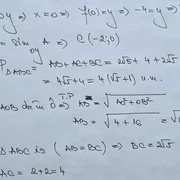 0y ⇒ x=0 ⇒ f(0)=y ⇒ -4=y ⇒
= Sim A ⇒ C(-2;0)
oy
P ΔABC = AB+AC+BC = 2√5 + 4 + 2√5
= 4√5+4 = 4(√5+1) u.m.
AOB dr. în O ⇒ T.P AB = √AO²+OB²
AB = √4+16 = √
ΔABC is (AB=BC) ⇒ BC=2√5
AC = 2+2=4